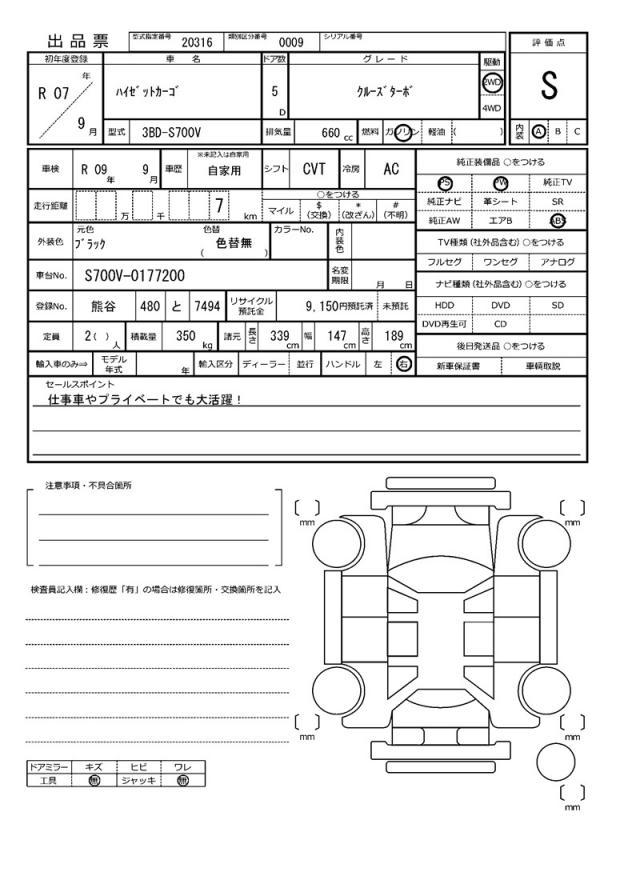 出品票 型式指定番号 20316 類別区分番号 0009 シリアル番号
評価点
S
初年度登録 車名 ドア数 グレード 駆動
R 07 年 ハイゼットカーゴ 5 D クルーズターボ 2WD
4WD
9 月 型式 3BD-S700V 排気量 660 cc 燃料 ガソリン 軽油 ( ) 内装 A B C
車検 R 09 年 9 月 車歴 ※未記入は自家用 自家用 シフト CVT 冷房 AC
純正装備品 ○をつける
PS PW 純正TV
純正ナビ 革シート SR
純正AW エアB ABS
走行距離 万 千 7 km ○をつける
マイル $(交換) *(改ざん) #(不明)
外装色 元色 ブラック 色替 色替無 ( ) カラーNo. 内装色
TV種類(社外品含む) ○をつける
フルセグ ワンセグ アナログ
車台No. S700V-0177200 名変期限 月 日
ナビ種類(社外品含む) ○をつける
HDD DVD SD
DVD再生可 CD
登録No. 熊谷 480 と 7494 リサイクル預託金 9,150円預託済 未預託
定員 2( )人 積載量 350 kg 諸元 長さ 339 cm 幅 147 cm 高さ 189 cm
後日発送品 ○をつける
新車保証書 車輌取説
輸入車のみ⇒ モデル年式 年 輸入区分 ディーラー 並行 ハンドル 左 右
セールスポイント
仕事車やプライベートでも大活躍！
注意事項・不具合箇所
mm mm
検査員記入欄：修復歴「有」の場合は修復箇所・交換箇所を記入
mm mm
ドアミラー キズ ヒビ ワレ
工具 無 ジャッキ 無
mm